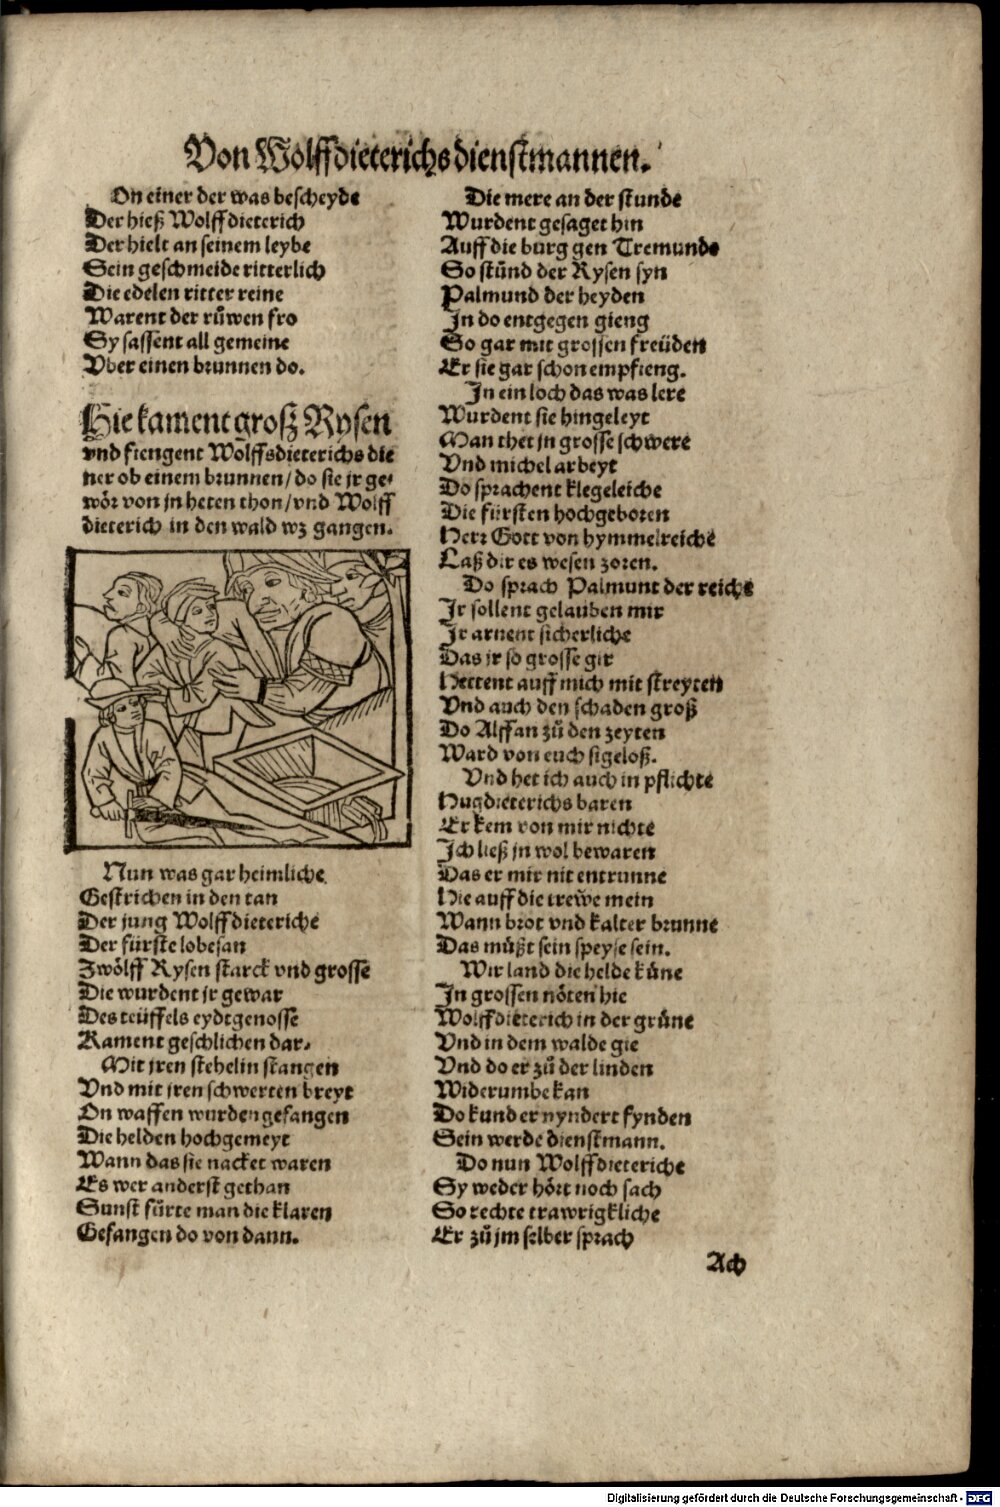 Von Wolffdieterichs dienstmannen.
On einer der was bescheyde
Der hieß Wolffdieterich
Der hielt an seinem leybe
Sein geschmeide ritterlich
Die edelen ritter reine
Warent der růwen fro
Sy sassent all gemeine
Vber einen brunnen do.
Hie kament groß Rysen
vnd fiengent Wolffsdieterichs die
ner ob einem brunnen / do sie jr ge-
wör von jn heten thon / vnd Wolff
dieterich in den wald wz gangen.
Nun was gar heimliche
Gestrichen in den tan
Der jung Wolffdieteriche
Der fürste lobesan
Zwölff Rysen starck vnd grosse
Die wurdent jr gewar
Des teüffels eydtgenosse
Kament geschlichen dar.
Mit jren stehelin stangen
Vnd mit jren schwerten breyt
On waffen wurden gefangen
Die helden hochgemeyt
Wann das sie nacket waren
Es wer anderst gethan
Sunst fürte man die klaren
Gefangen do von dann.
Die mere an der stunde
Wurdent gesaget hin
Auff die burg gen Tremunde
So stůnd der Rysen syn
Palmund der heyden
Jn do entgegen gieng
So gar mit grossen freüden
Er sie gar schon empfieng.
Jn ein loch das was lere
Wurdent sie hingeleyt
Man thet jn grosse schwere
Vnd michel arbeyt
Do sprachent klegeleiche
Die fürsten hochgeboren
Herr Gott von hymmelreiche
Laß dir es wesen zoren.
Do sprach Palmunt der reiche
Jr sollent gelauben mir
Jr arnent sicherliche
Das jr so grosse gir
Hettent auff mich mit streyten
Vnd auch den schaden groß
Do Alffan zů den zeyten
Ward von euch sigeloß.
Vnd het ich auch in pflichte
Hugdieterichs baren
Er kem von mir nichte
Jch ließ jn wol bewaren
Das er mir nit entrunne
Hie auff die trewe mein
Wann brot vnd kalter brunne
Das müßt sein speyse sein.
Wir land die helde küne
Jn grossen nöten hie
Wolffdieterich in der grüne
Vnd in dem walde gie
Vnd do er zů der linden
Widerumbe kan
Do kund er nyndert fynden
Sein werde dienstmann.
Do nun Wolffdieteriche
Sy weder hört noch sach
So rechte trawrigkliche
Er zů jm selber sprach
Ach
Digitalisierung gefördert durch die Deutsche Forschungsgemeinschaft - DFG